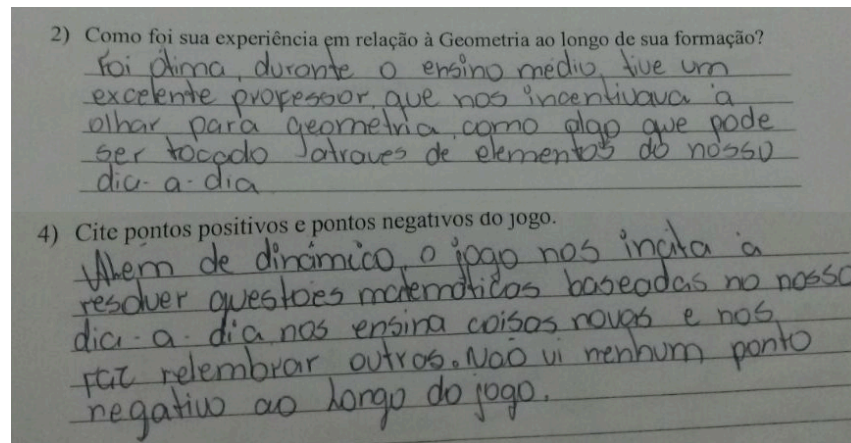 2) Como foi sua experiência em relação à Geometria ao longo de sua formação?
Foi ótima, durante o ensino médio, tive um
excelente professor, que nos incentivava a
olhar para geometria como algo que pode
ser tocado atraves de elementos do nosso
dia-a-dia
4) Cite pontos positivos e pontos negativos do jogo.
Além de dinâmico, o jogo nos incita a
resolver questões matemáticas baseadas no nosso
dia-a-dia, nos ensina coisas novas e nos
faz relembrar outros. Não vi nenhum ponto
negativo ao longo do jogo.